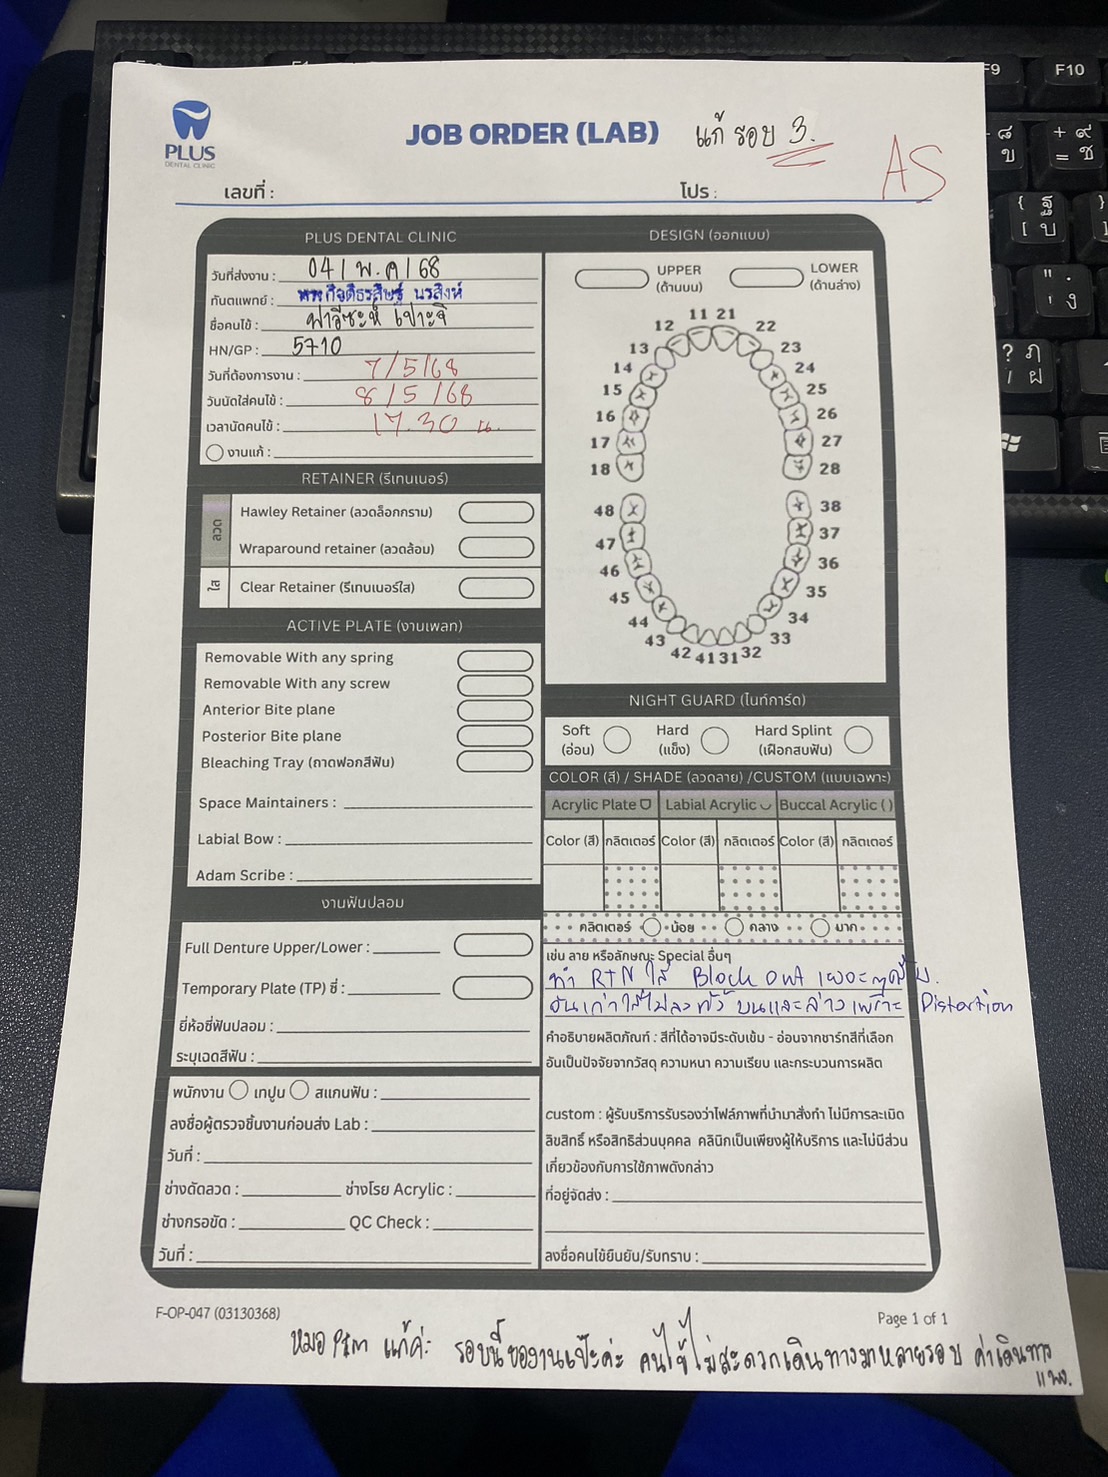 PLUS
DENTAL CLINIC
JOB ORDER (LAB)
แก้ รอบ 3.
AS
เลขที่ :
โปร :
PLUS DENTAL CLINIC
วันที่ส่งงาน : 04 / พ.ค / 68
ทันตแพทย์ : กิจติธรสิษฐ์ นรสิงห์
ชื่อคนไข้ : ฟาอีซะห์ เปาะจิ
HN/GP : 5710
วันที่ต้องการงาน : 7/5/68
วันนัดใส่คนไข้ : 8/5/68
เวลานัดคนไข้ : 17.30 น.
งานแก้ :
RETAINER (รีเทนเนอร์)
ลวด
Hawley Retainer (ลวดล็อกกราม)
Wraparound retainer (ลวดล้อม)
ใส
Clear Retainer (รีเทนเนอร์ใส)
ACTIVE PLATE (งานเพลท)
Removable With any spring
Removable With any screw
Anterior Bite plane
Posterior Bite plane
Bleaching Tray (ถาดฟอกสีฟัน)
Space Maintainers :
Labial Bow :
Adam Scribe :
งานฟันปลอม
Full Denture Upper/Lower :
Temporary Plate (TP) ซี่ :
ยี่ห้อซี่ฟันปลอม :
ระบุเฉดสีฟัน :
พนักงาน เทปูน สแกนฟัน :
ลงชื่อผู้ตรวจชิ้นงานก่อนส่ง Lab :
วันที่ :
ช่างดัดลวด : ช่างโรย Acrylic :
ช่างกรอขัด : QC Check :
วันที่ :
DESIGN (ออกแบบ)
UPPER
(ด้านบน)
LOWER
(ด้านล่าง)
11 21
12 22
13 23
14 24
15 25
16 26
17 27
18 28
48 38
47 37
46 36
45 35
44 34
43 33
42 41 31 32
NIGHT GUARD (ไนท์การ์ด)
Soft
(อ่อน)
Hard
(แข็ง)
Hard Splint
(เฝือกสบฟัน)
COLOR (สี) / SHADE (ลวดลาย) /CUSTOM (แบบเฉพาะ)
Acrylic Plate Labial Acrylic Buccal Acrylic ( )
Color (สี) กลิตเตอร์ Color (สี) กลิตเตอร์ Color (สี) กลิตเตอร์
กลิตเตอร์ น้อย กลาง มาก
เช่น ลาย หรือลักษณะ Special อื่นๆ
ทำ RTN ใส Block out เยอะๆ
อันเก่าใส่ไม่ลงทั้ง บนและล่าง เพราะ Distortion
คำอธิบายผลิตภัณฑ์ : สีที่ได้อาจมีระดับเข้ม - อ่อนจากชาร์ทสีที่เลือก
อันเป็นปัจจัยจากวัสดุ ความหนา ความเรียบ และกระบวนการผลิต
custom : ผู้รับบริการรับรองว่าไฟล์ภาพที่นำมาสั่งทำ ไม่มีการละเมิด
ลิขสิทธิ์ หรือสิทธิส่วนบุคคล คลินิกเป็นเพียงผู้ให้บริการ และไม่มีส่วน
เกี่ยวข้องกับการใช้ภาพดังกล่าว
ที่อยู่จัดส่ง :
ลงชื่อคนไข้ยืนยัน/รับทราบ :
F-OP-047 (03130368)
Page 1 of 1
หมอ Pim แก้ค่ะ รอบนี้ของานเป๊ะค่ะ คนไข้ไม่สะดวกเดินทางมาหลายรอบ ค่าเดินทาง
แพง.